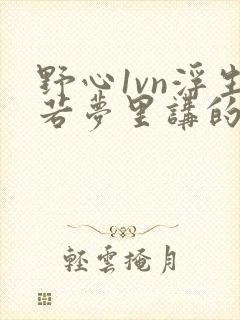 野心1vn浮生
若夢里講的
輕雲掩月